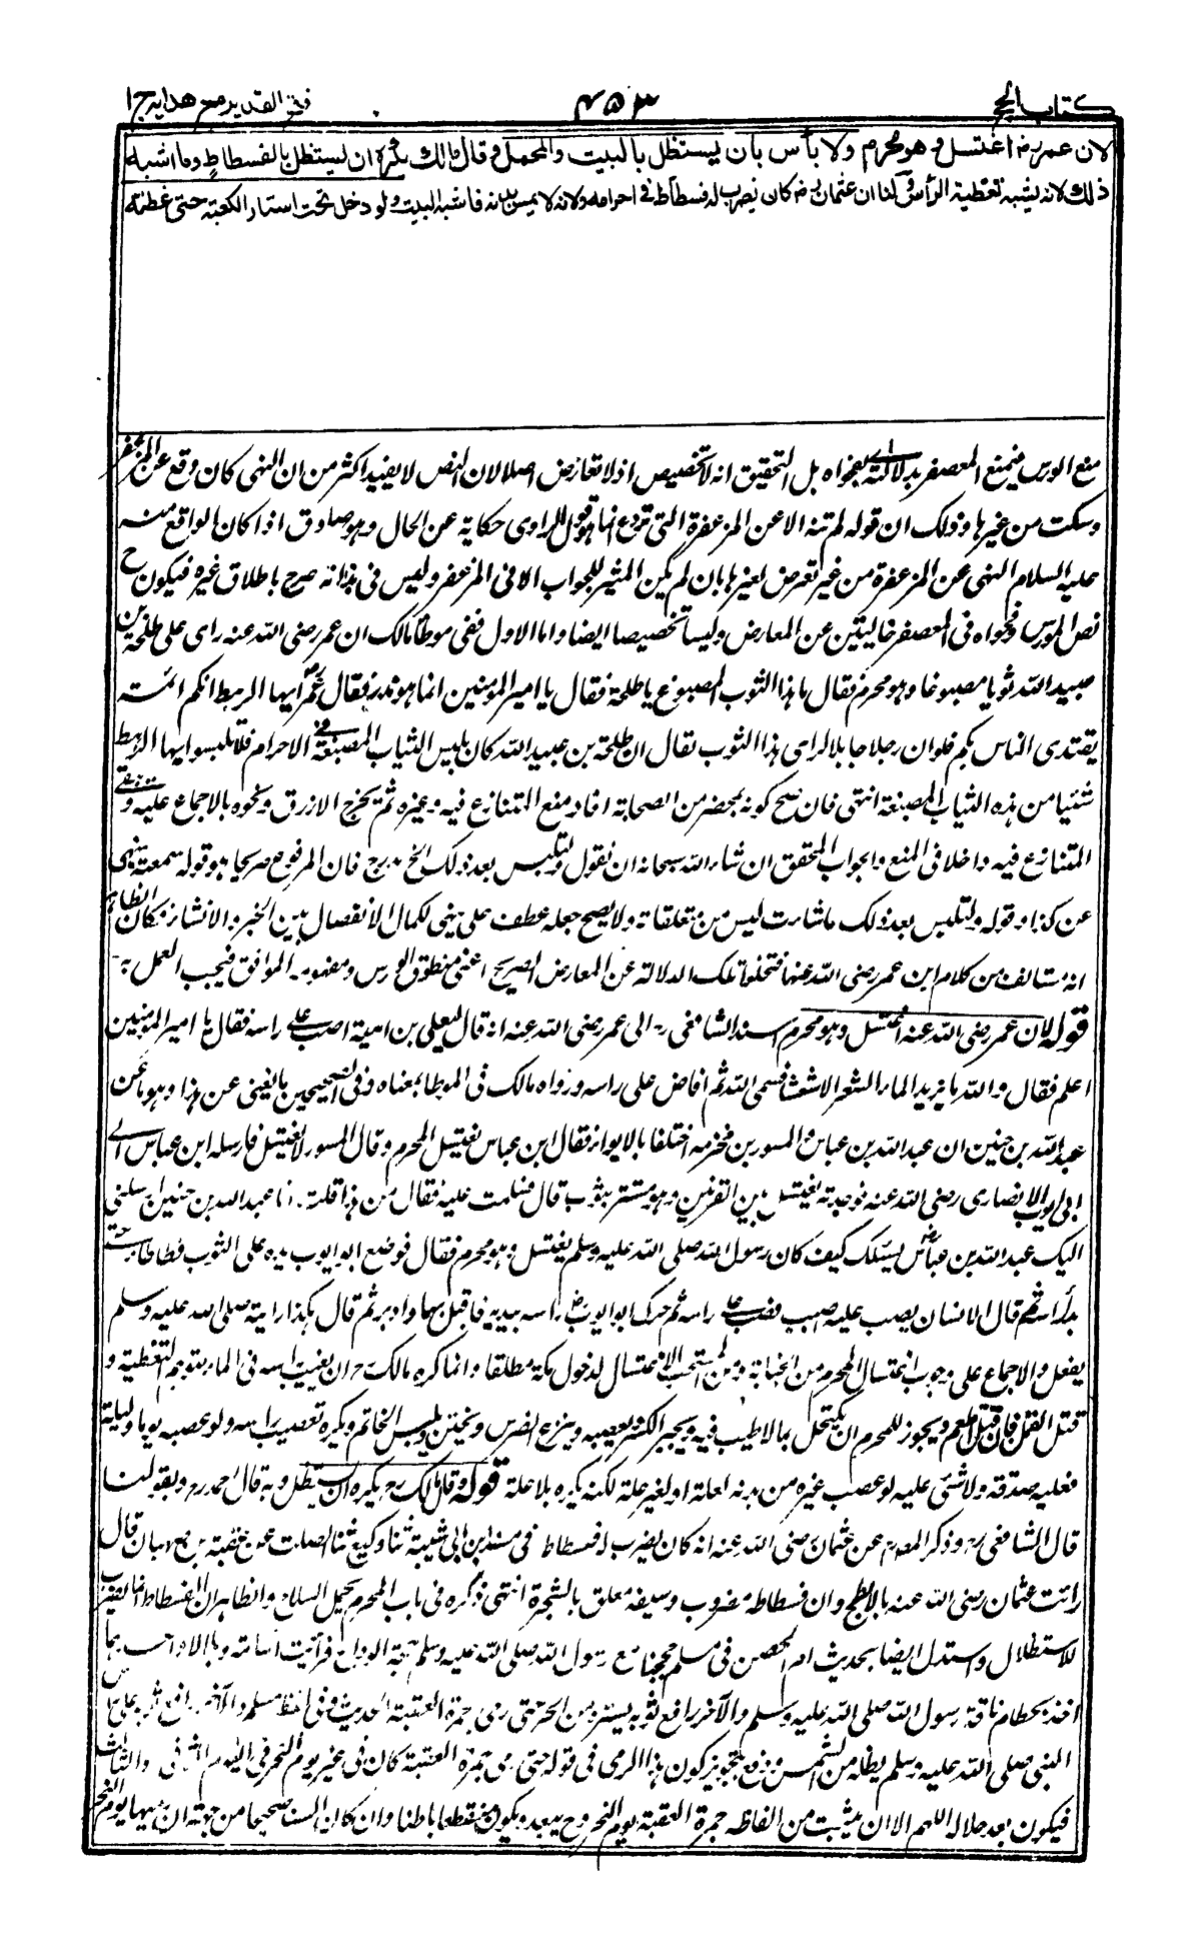 كتاب الحج
٤٥٣
فتح القدير مع هدايه ج ١
لان عمر رض اغتسل وهو محرم ولا بأس بان يستظل بالبيت والمحمل وقال مالك يكره ان يستظل بالفسطاط وما اشبه
ذلك لانه يشبه تغطية الرأس ولنا ان عثمان رض كان يضرب له فسطاط في احرامه ولانه لا يمس بدنه فاشبه البيت ولو دخل تحت استار الكعبة حتى غطته
منع الورس فيمنع المعصفر بدلالته اى بفحواه بل التحقيق انه لا تخصيص اذ لا تعارض اصلا لان النص لا يفيد اكثر من ان النهى كان وقع عن المزعفر
وسكت من غيرها وذلك ان قوله لم تنه الا عن المزعفرة التى تردع انما هو قول للراوى حكاية عن الحال وهو صادق اذا كان الواقع منه
عليه السلام النهى عن المزعفرة من غير تعرض لغيرها بان لم يكن المثير للجواب الا فى المزعفر وليس فى هذا انه صرح باطلاق غيره فيكون ح
نص الورس وفحواه فى المعصفر خاليتين عن المعارض وليسا تخصيصا ايضا واما الاول ففى موطأ مالك ان عمر رضى الله عنه راى على طلحة بن
عبيد الله ثوبا مصبوغا وهو محرم فقال ما هذا الثوب المصبوغ يا طلحة فقال يا امير المؤمنين انما هو مدر فقال عمر ايها الرهط انكم ائمة
يقتدى الناس بكم فلو ان رجلا جاهلا راى هذا الثوب لقال ان طلحة بن عبيد الله كان يلبس الثياب المصبغة فى الاحرام فلا تلبسوا ايها الرهط
شئيا من هذه الثياب المصبغة انتهى فان صح كونه بمحضر من الصحابة افاد منع المتنازع فيه وغيره ثم يخرج الازرق ونحوه بالاجماع عليه ويبقى
المتنازع فيه داخلا فى المنع والجواب المحقق ان شاء الله سبحانه ان نقول ولتلبس بعد ذلك الخ مدرج فان المرفوع صريحا هو قوله سمعته ينهى
عن كذا وقوله ولتلبس بعد ذلك ما شاءت ليس من متعلقاته ولا يصح جعله عطف على ينهى لكمال الانفصال بين الخبر والانشاء فكان الظاهر
انه مستانف من كلام ابن عمر رضى الله عنهما فتخلو تلك الدلالة عن المعارض الصريح اعنى منطوق الورس ومفهومه الموافق فيجب العمل به
قوله لان عمر رضى الله عنه اغتسل وهو محرم اسند الشافعى رح الى عمر رضى الله عنه انه قال ليعلى بن امية اصب على راسه فقال يا امير المؤمنين
اعلم فقال والله ما يزيد الماء الشعر الا شعثا فسمى الله ثم افاض على راسه ورواه مالك فى الموطا بمعناه وفى الصحيحين ما يغنى عن هذا وهو ما عن
عبد الله بن حنين ان عبد الله بن عباس والمسور بن مخرمة اختلفا بالابواء فقال ابن عباس يغتسل المحرم وقال المسور لا يغتسل فارسله ابن عباس الى
ابى ايوب الانصارى رضى الله عنه فوجدته يغتسل بين القرنين وهو مستتر بثوب قال فسلمت عليه فقال من هذا قلت انا عبد الله بن حنين ارسلنى
اليك عبد الله بن عباس يسئلك كيف كان رسول الله صلى الله عليه وسلم يغتسل وهو محرم فقال فوضع ابو ايوب يده على الثوب فطاطاه حتى
بدا راسه ثم قال لانسان يصب عليه اصبب فصب على راسه ثم حرك ابو ايوب راسه بيديه فاقبل بهما وادبر ثم قال هكذا رايته صلى الله عليه وسلم
يفعل والاجماع على وجوب اغتسال المحرم من الجنابة ومن المستحب الاغتسال لدخول مكة مطلقا وانما كره مالك رح ان يغيب راسه فى الماء لتوهم التغطية و
قتل القمل فان قتل اطعم ويجوز للمحرم ان يكتحل بما لا طيب فيه ويجبر الكسر ويعصبه وينزع الضرس ويختتن ويلبس الخاتم ويكره تعصيب راسه ولو عصبه يوما وليلة
فعليه صدقة ولا شئى عليه لو عصب غيره من بدنه لعلة او لغير علة لكنه يكره بلا علة قوله وقال مالك رح يكره ان يستظل وبه قال احمد رح وبقولنا
قال الشافعى رح وذكر المص رح عن عثمان رضى الله عنه انه كان يضرب له فسطاط فى مسند ابن ابى شيبة ثنا وكيع ثنا الصلت عن عقبة بن صهبان قال
رائت عثمان رضى الله عنه بالابطح وان فسطاطه مضروب وسيفه معلق بالشجرة انتهى ذكره فى باب المحرم يحمل السلاح والظاهر ان الفسطاط انما يضرب
للاستظلال واستدل ايضا بحديث ام الحصين فى مسلم حججنا مع رسول الله صلى الله عليه وسلم حجة الوداع فرأيت اسامة وبلالا واحدهما
اخذ بخطام ناقة رسول الله صلى الله عليه وسلم والآخر رافع ثوبه يستره من الحر حتى رمى جمرة العقبة الحديث وفى لفظ مسلم والآخر رافع ثوبه على راس
النبى صلى الله عليه وسلم يظله من الشمس ودفع بتجويز كون هذا الرمى فى قوله حتى رمى جمرة العقبة كان فى غير يوم النحر فى اليوم الثانى والثالث
فيكون بعد حلاله اللهم الا ان يثبت من الفاظه جمرة العقبة يوم النحر وح يبعد ويكون منقطعا باطنا وان كان السند صحيحا من جهة ان رميها يوم النحر